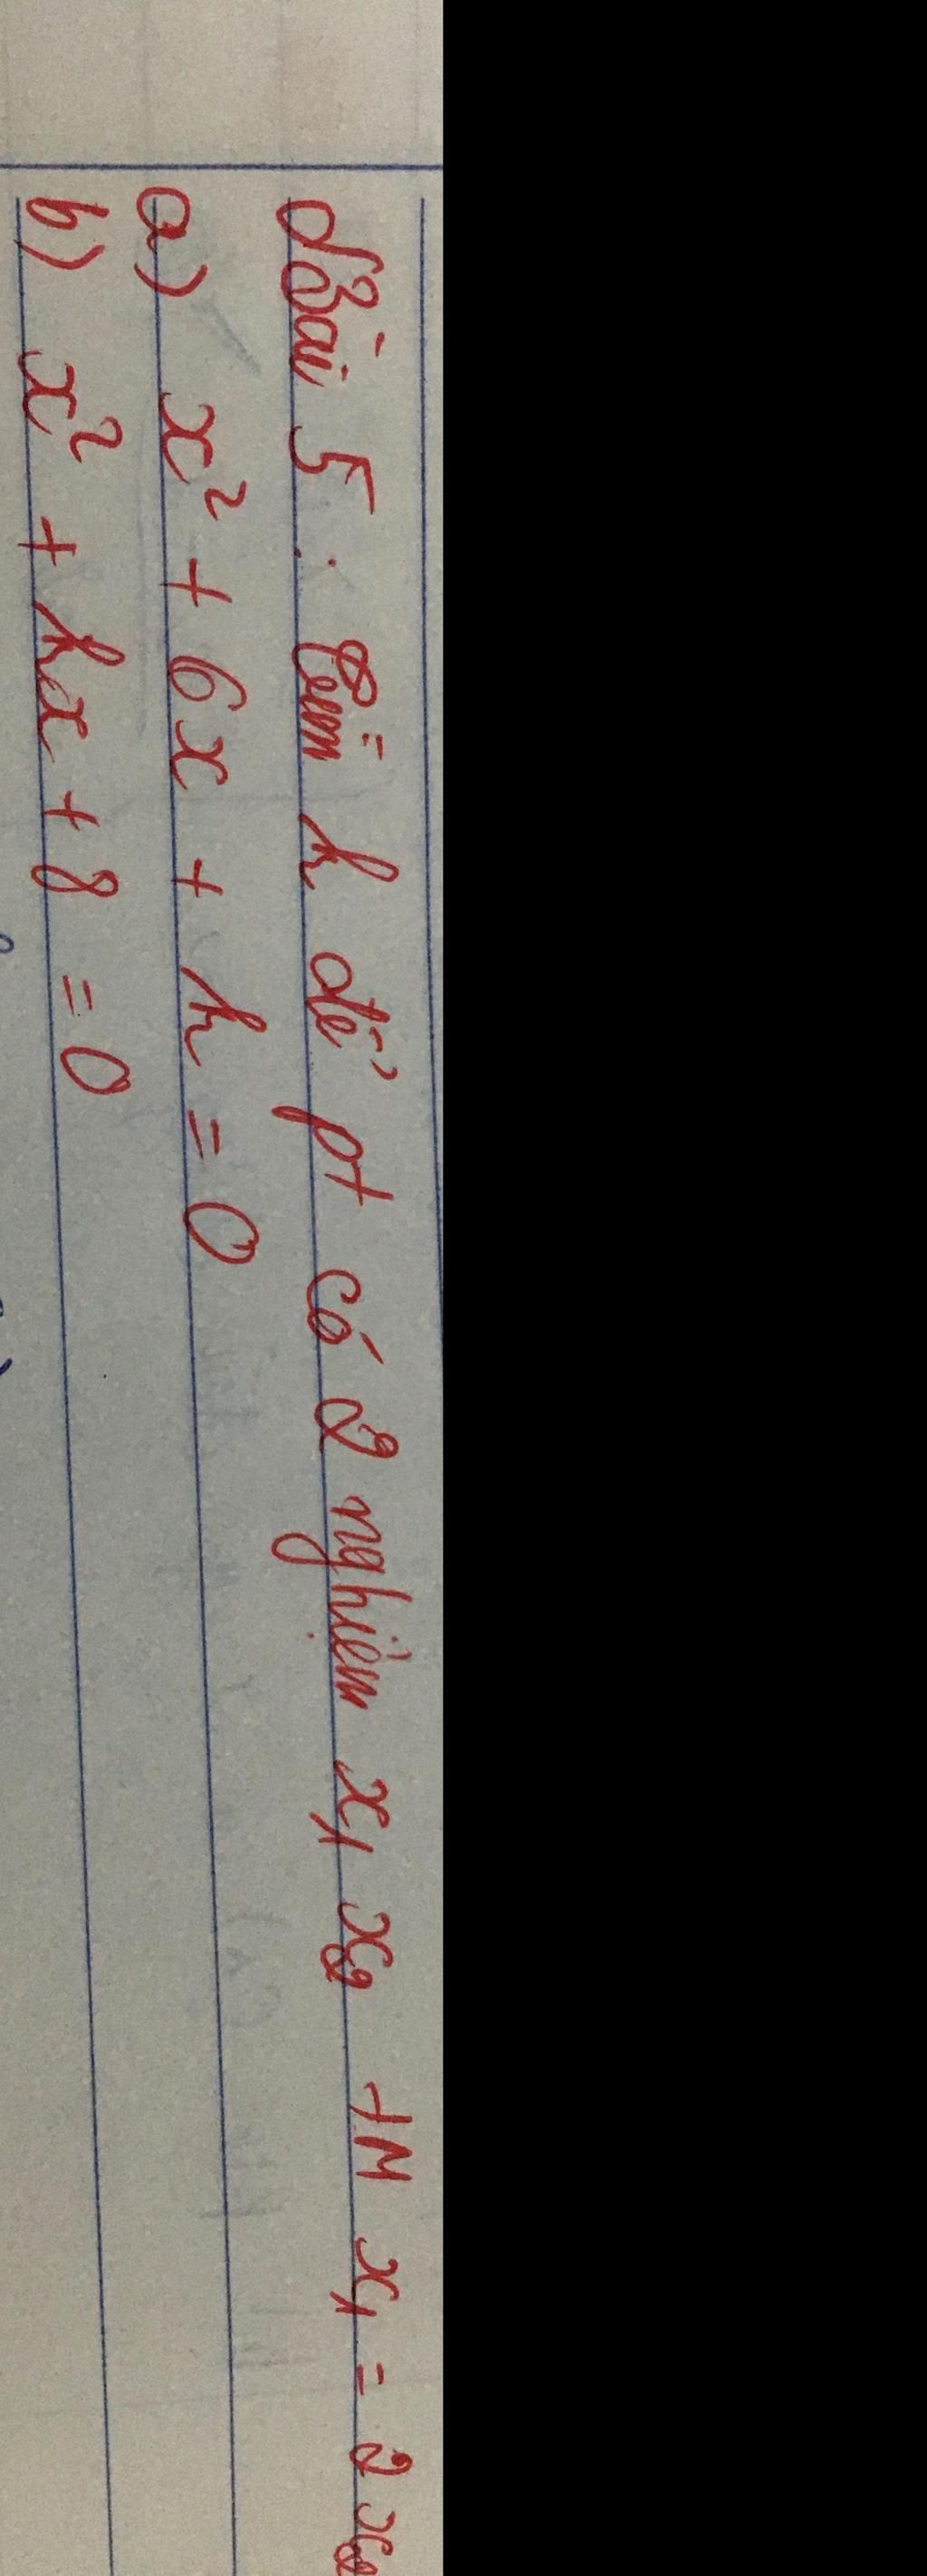 Bài 5. Tìm k để pt có 2 nghiệm x₁ x₂ +M x₁ = 2x₂
a) x² + 6x + k = 0
b) x² + kx + 8 = 0